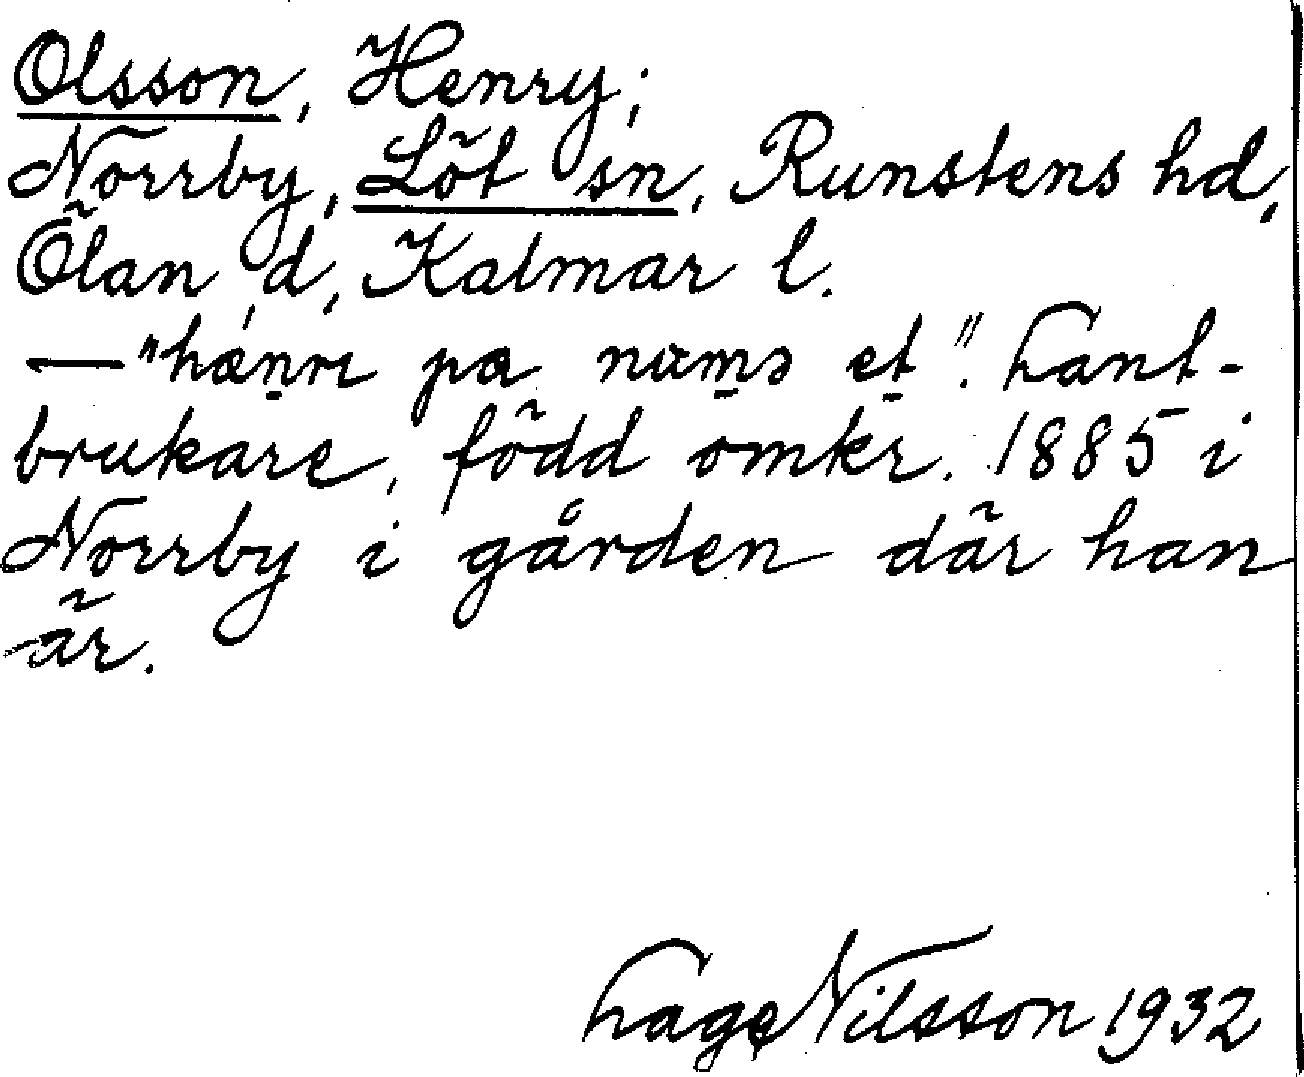 Olsson, Henry;
Norrby, Löt sn, Runstens hd,
Öland, Kalmar l.
— "hænrɪ pɑ nɑmə et". Lant-
brukare, född omkr. 1885 i
Norrby i gården där han
är.
Lage Nilsson 1932